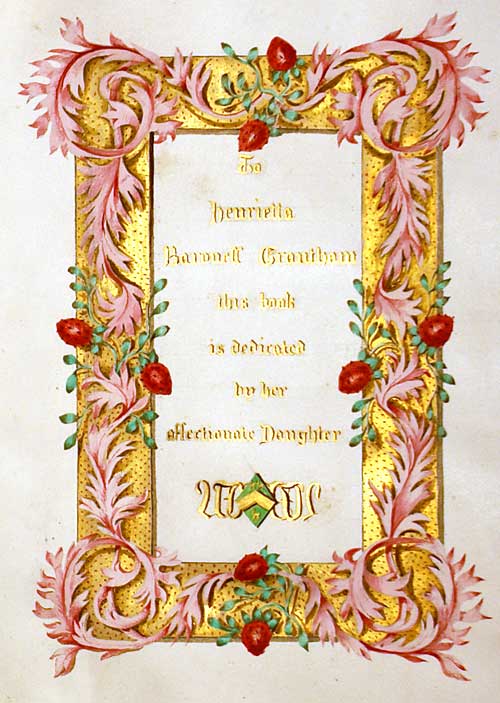 To
Henrietta
Baroness Grantham
this book
is dedicated
by her
affectionate Daughter